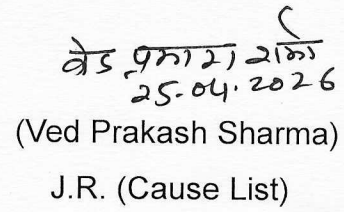 वेद प्रकाश शर्मा
25.04.2026
(Ved Prakash Sharma)
J.R. (Cause List)